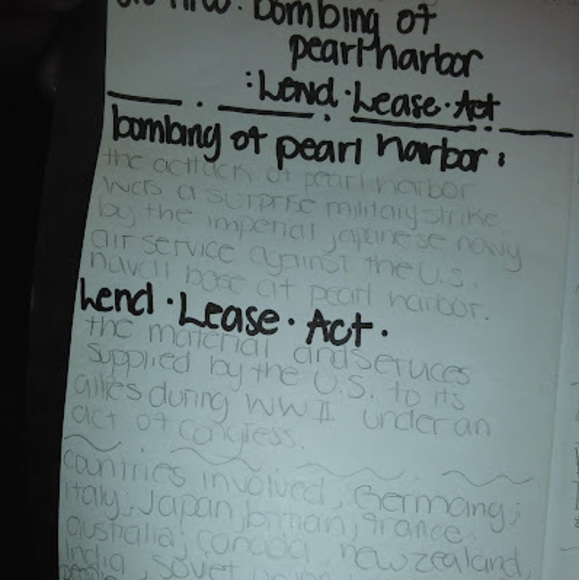 HW: bombing of
pearl harbor
: Lend · Lease · Act
bombing of pearl harbor :
the acttack of pearl harbor
was a surprise military strike
by the imperial japanese navy
air service against the U.S.
navall base at pearl harbor.
Lend · Lease · Act ·
the material and services
supplied by the U.S. to its
allies during WW II under an
act of congress.
countries involved, Germany,
Italy, Japan, france,
australia, canada, new zealand,
India, soviet